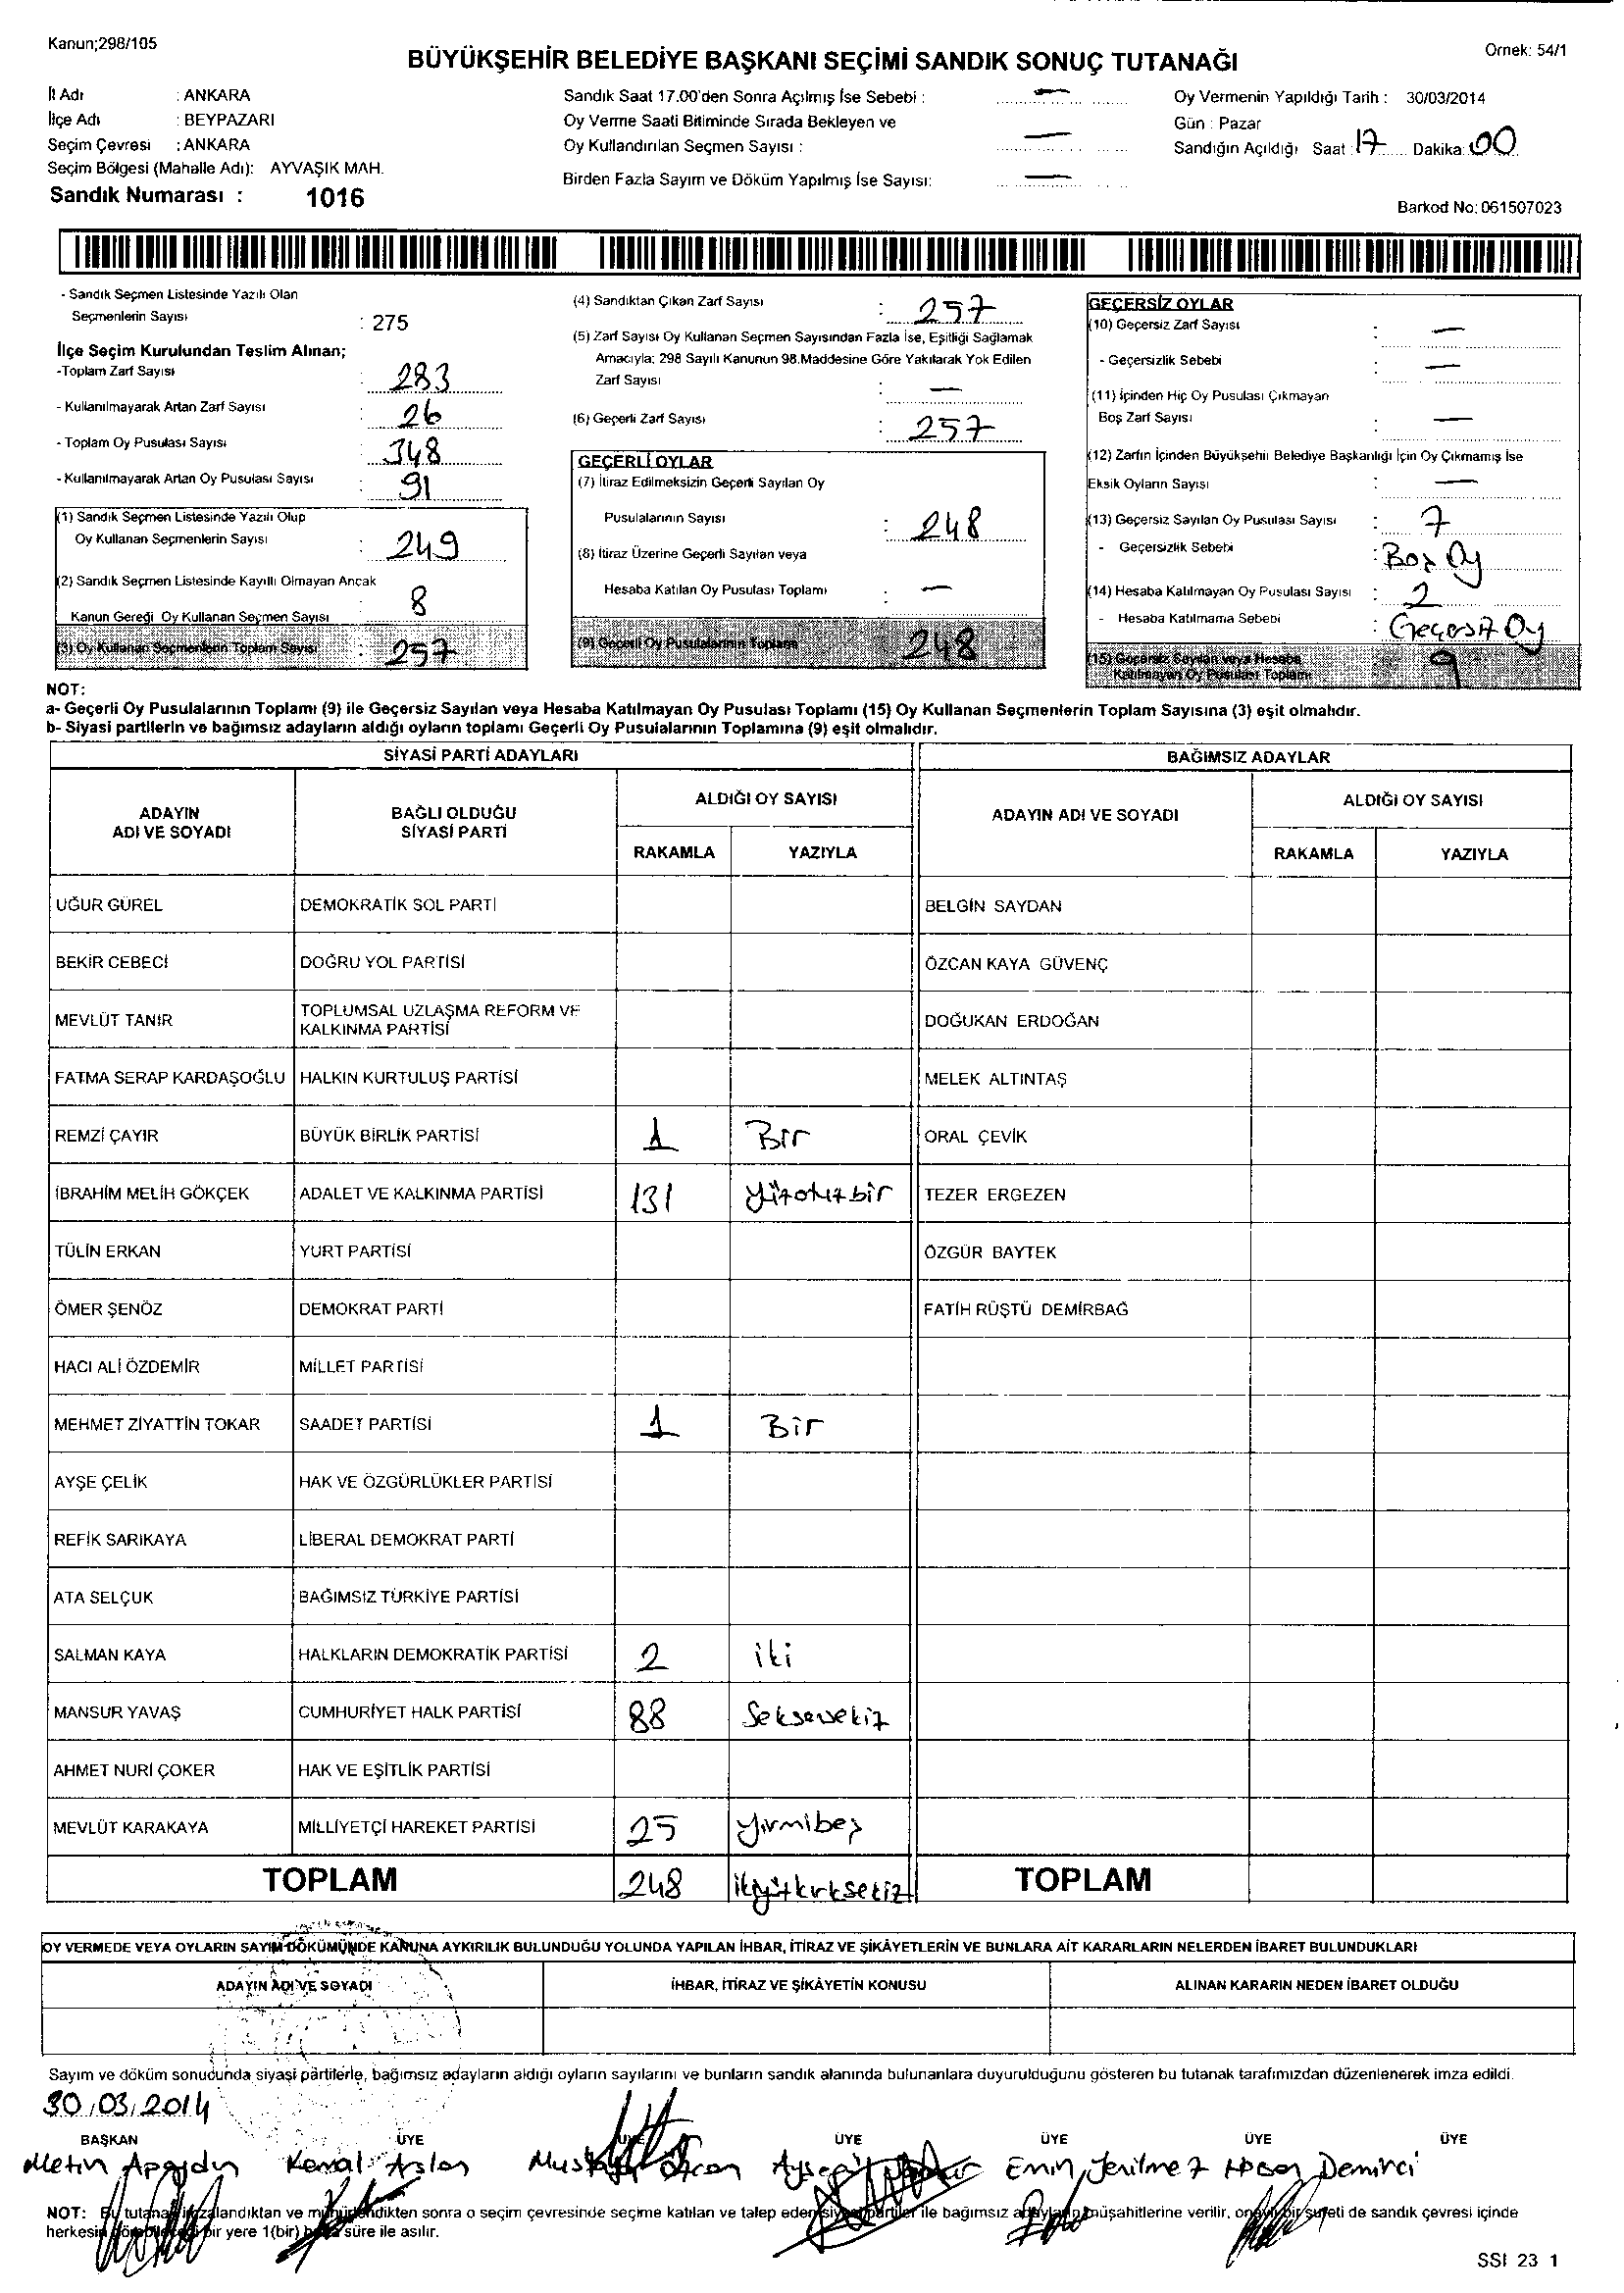 Kanun;298/105
Örnek: 54/1
BÜYÜKŞEHİR BELEDİYE BAŞKANI SEÇİMİ SANDIK SONUÇ TUTANAĞI
İl Adı : ANKARA
İlçe Adı : BEYPAZARI
Seçim Çevresi : ANKARA
Seçim Bölgesi (Mahalle Adı): AYVAŞIK MAH.
Sandık Numarası : 1016
Sandık Saat 17.00'den Sonra Açılmış İse Sebebi : —
Oy Verme Saati Bitiminde Sırada Bekleyen ve
Oy Kullandırılan Seçmen Sayısı : —
Birden Fazla Sayım ve Döküm Yapılmış İse Sayısı: —
Oy Vermenin Yapıldığı Tarih : 30/03/2014
Gün : Pazar
Sandığın Açıldığı Saat : 17 Dakika: 00
Barkod No: 061507023
- Sandık Seçmen Listesinde Yazılı Olan
Seçmenlerin Sayısı : 275
İlçe Seçim Kurulundan Teslim Alınan;
-Toplam Zarf Sayısı : 283
- Kullanılmayarak Artan Zarf Sayısı : 26
- Toplam Oy Pusulası Sayısı : 348
- Kullanılmayarak Artan Oy Pusulası Sayısı : 91
(1) Sandık Seçmen Listesinde Yazılı Olup
Oy Kullanan Seçmenlerin Sayısı : 249
(2) Sandık Seçmen Listesinde Kayıtlı Olmayan Ancak
Kanun Gereği Oy Kullanan Seçmen Sayısı : 8
(3) Oy Kullanan Seçmenlerin Toplam Sayısı : 257
(4) Sandıktan Çıkan Zarf Sayısı : 257
(5) Zarf Sayısı Oy Kullanan Seçmen Sayısından Fazla İse, Eşitliği Sağlamak
Amacıyla; 298 Sayılı Kanunun 98.Maddesine Göre Yakılarak Yok Edilen
Zarf Sayısı : —
(6) Geçerli Zarf Sayısı : 257
GEÇERLİ OYLAR
(7) İtiraz Edilmeksizin Geçerli Sayılan Oy
Pusulalarının Sayısı : 248
(8) İtiraz Üzerine Geçerli Sayılan veya
Hesaba Katılan Oy Pusulası Toplamı : —
(9) Geçerli Oy Pusulalarının Toplamı 248
GEÇERSİZ OYLAR
(10) Geçersiz Zarf Sayısı : —
- Geçersizlik Sebebi : —
(11) İçinden Hiç Oy Pusulası Çıkmayan
Boş Zarf Sayısı : —
(12) Zarfın İçinden Büyükşehir Belediye Başkanlığı İçin Oy Çıkmamış İse
Eksik Oyların Sayısı : —
(13) Geçersiz Sayılan Oy Pusulası Sayısı : 7
- Geçersizlik Sebebi : Boş Oy
(14) Hesaba Katılmayan Oy Pusulası Sayısı : 2
- Hesaba Katılmama Sebebi : Geçersiz Oy
(15) Geçersiz Sayılan veya Hesaba
Katılmayan Oy Pusulası Toplamı : 9
NOT:
a- Geçerli Oy Pusulalarının Toplamı (9) ile Geçersiz Sayılan veya Hesaba Katılmayan Oy Pusulası Toplamı (15) Oy Kullanan Seçmenlerin Toplam Sayısına (3) eşit olmalıdır.
b- Siyasi partilerin ve bağımsız adayların aldığı oyların toplamı Geçerli Oy Pusulalarının Toplamına (9) eşit olmalıdır.
SİYASİ PARTİ ADAYLARI BAĞIMSIZ ADAYLAR
ADAYIN ADI VE SOYADI BAĞLI OLDUĞU SİYASİ PARTİ ALDIĞI OY SAYISI ADAYIN ADI VE SOYADI ALDIĞI OY SAYISI
RAKAMLA YAZIYLA RAKAMLA YAZIYLA
UĞUR GÜREL DEMOKRATİK SOL PARTİ BELGİN SAYDAN
BEKİR CEBECİ DOĞRU YOL PARTİSİ ÖZCAN KAYA GÜVENÇ
MEVLÜT TANIR TOPLUMSAL UZLAŞMA REFORM VE KALKINMA PARTİSİ DOĞUKAN ERDOĞAN
FATMA SERAP KARDAŞOĞLU HALKIN KURTULUŞ PARTİSİ MELEK ALTINTAŞ
REMZİ ÇAYIR BÜYÜK BİRLİK PARTİSİ 1 Bir ORAL ÇEVİK
İBRAHİM MELİH GÖKÇEK ADALET VE KALKINMA PARTİSİ 131 yüzotuzbir TEZER ERGEZEN
TÜLİN ERKAN YURT PARTİSİ ÖZGÜR BAYTEK
ÖMER ŞENÖZ DEMOKRAT PARTİ FATİH RÜŞTÜ DEMİRBAĞ
HACI ALİ ÖZDEMİR MİLLET PARTİSİ
MEHMET ZİYATTİN TOKAR SAADET PARTİSİ 1 Bir
AYŞE ÇELİK HAK VE ÖZGÜRLÜKLER PARTİSİ
REFİK SARIKAYA LİBERAL DEMOKRAT PARTİ
ATA SELÇUK BAĞIMSIZ TÜRKİYE PARTİSİ
SALMAN KAYA HALKLARIN DEMOKRATİK PARTİSİ 2 iki
MANSUR YAVAŞ CUMHURİYET HALK PARTİSİ 88 Seksensekiz
AHMET NURİ ÇOKER HAK VE EŞİTLİK PARTİSİ
MEVLÜT KARAKAYA MİLLİYETÇİ HAREKET PARTİSİ 25 yirmibeş
TOPLAM 248 ikiyüzkırksekiz TOPLAM
OY VERMEDE VEYA OYLARIN SAYIM DÖKÜMÜNDE KANUNA AYKIRILIK BULUNDUĞU YOLUNDA YAPILAN İHBAR, İTİRAZ VE ŞİKÂYETLERİN VE BUNLARA AİT KARARLARIN NELERDEN İBARET BULUNDUKLARI
ADAYIN ADI VE SOYADI İHBAR, İTİRAZ VE ŞİKÂYETİN KONUSU ALINAN KARARIN NEDEN İBARET OLDUĞU
Sayım ve döküm sonucunda siyasi partilerle, bağımsız adayların aldığı oyların sayılarını ve bunların sandık alanında bulunanlara duyurulduğunu gösteren bu tutanak tarafımızdan düzenlenerek imza edildi.
30.03.2014
BAŞKAN ÜYE ÜYE ÜYE ÜYE ÜYE ÜYE
Metin Apaydın Kemal Aslan Mustafa Özcan Emin Yenilmez Hasan Demirci
NOT: Bu tutanak imzalandıktan ve mühürlendikten sonra o seçim çevresinde seçime katılan ve talep eden siyasi partiler ile bağımsız adayların müşahitlerine verilir, onaylı bir sureti de sandık çevresi içinde
herkesin görebileceği bir yere 1(bir) hafta süre ile asılır.
SSI 23 1